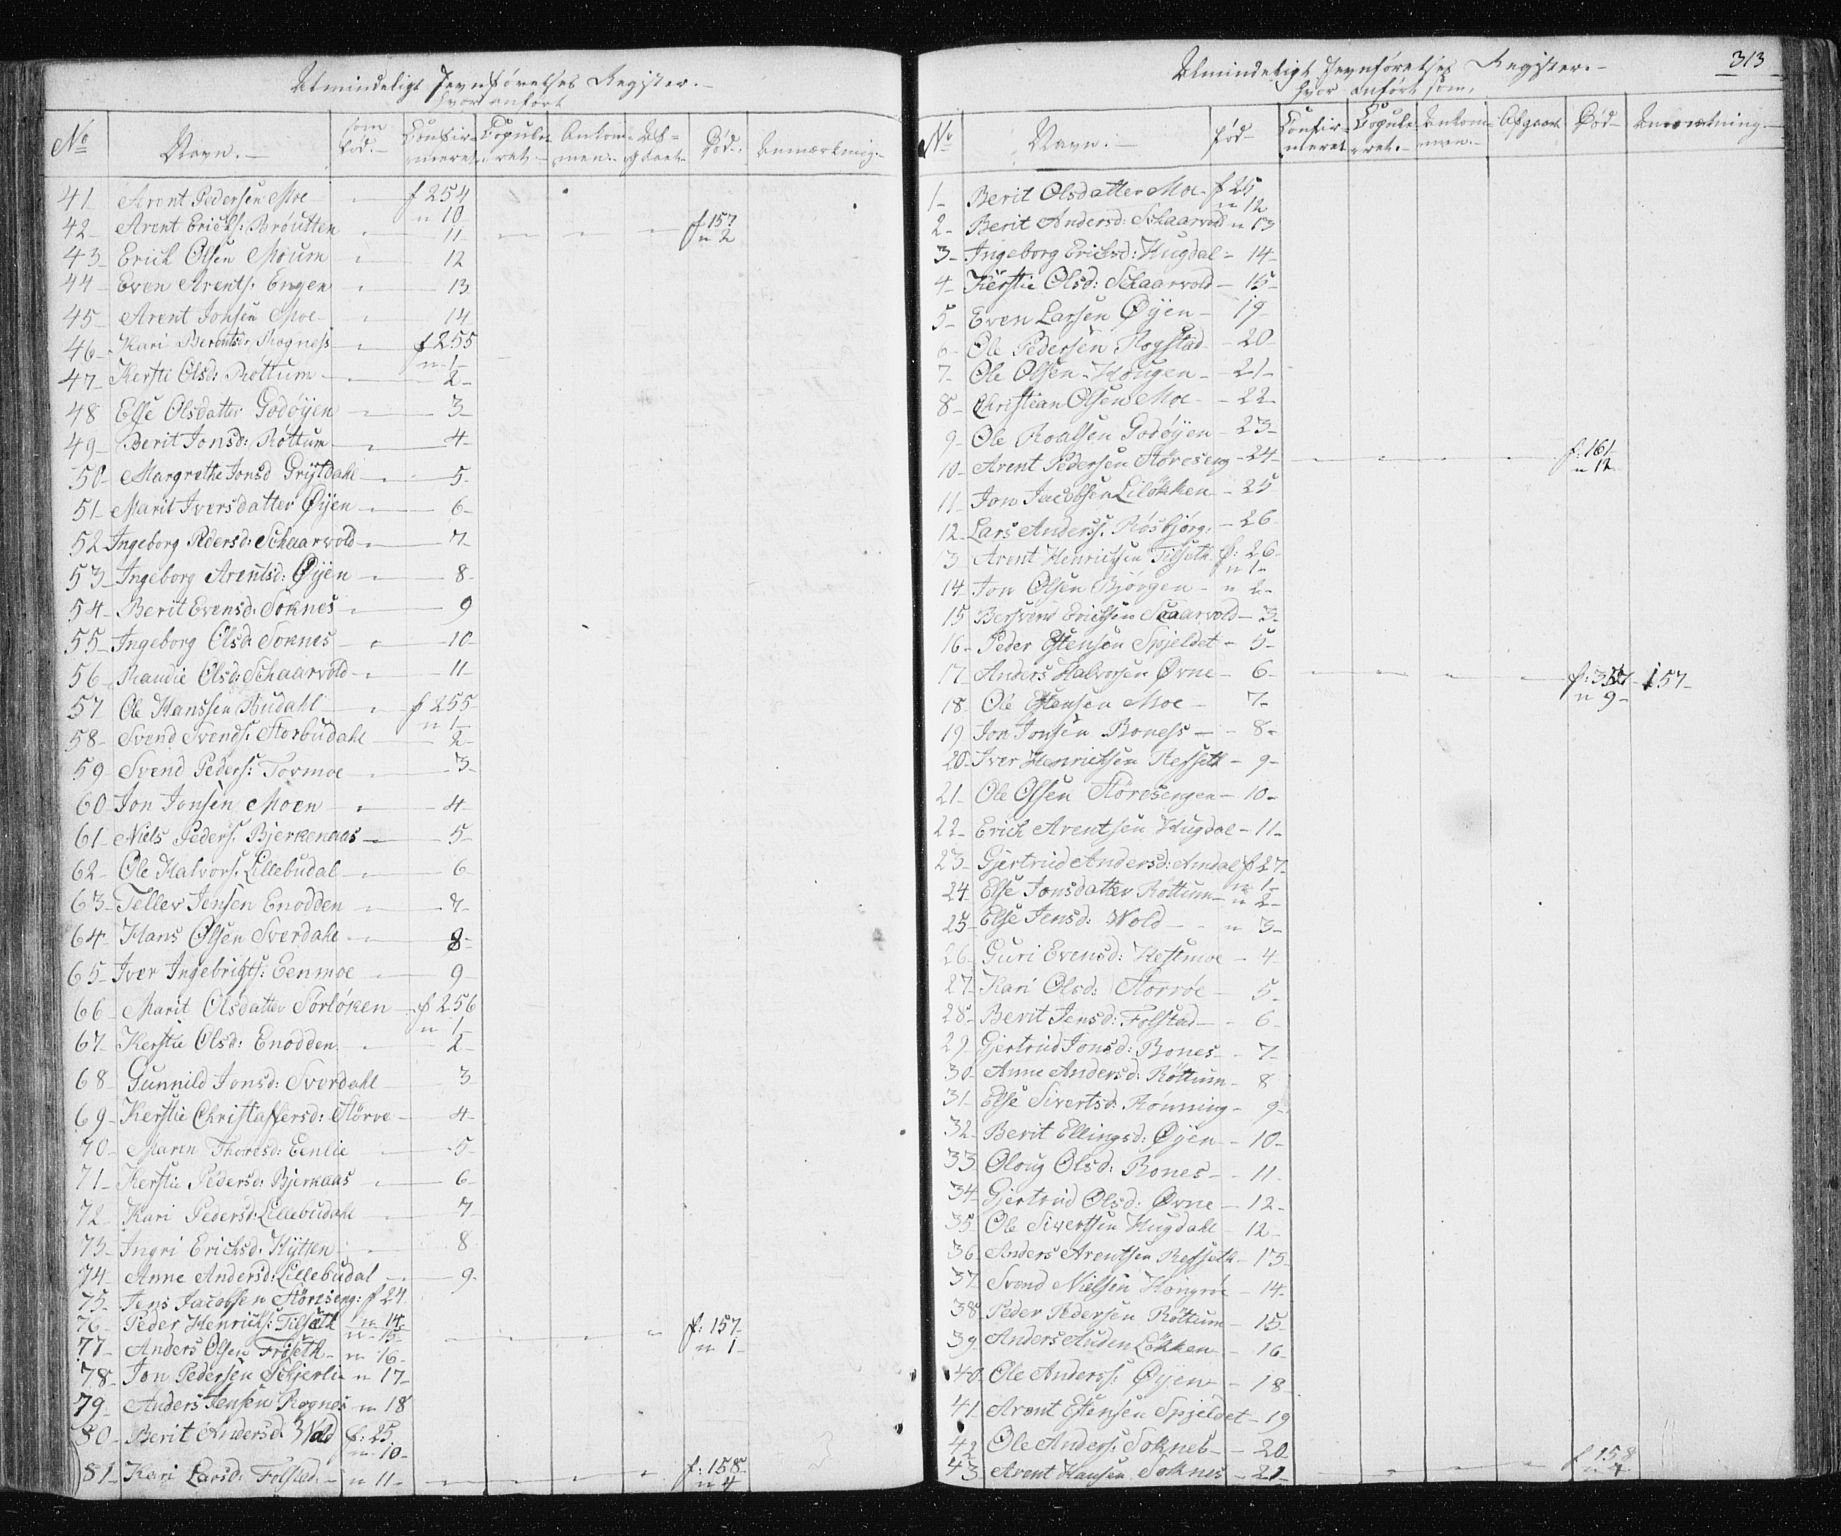 Almindeligt Jevnførelses Register.
hvor anført
No Navn. som fød. Confirmeret Copuleret Ankommen Afgaaet Død. Anmærkning.
41 Arent Pedersen Moe f 254 n 10
42 Arent Ericks: Broutten 11 f 157 n 2
43 Erick Olsen Moum 12
44 Even Arents. Engen 13
45 Arent Johsen Moe 14
46 Kari Berntsdr Rogness f 255 n 1
47 Kersti Olsd: Røttum 2
48 Else Olsdatter Godøyen 3
49 Berit Jonsd: Røttum 4
50 Margrethe Jonsd Grytdahl 5
51 Marit Iversdatter Øyen 6
52 Ingeborg Pedersd: Schaarvold 7
53 Ingeborg Arentsd: Øyen 8
54 Berit Evensd. Soknes 9
55 Ingeborg Olsd: Soknes 10
56 Randie Olsd: Schaarvold 11
57 Ole Hanssen Budahl f 255 n 1
58 Svend Svends: Storbudahl 2
59 Svend Peders: Tormoe 3
60 Jon Jonsen Moen 4
61 Niels Peders. Bjerkenaas 5
62 Ole Halvors. Lillebudal 6
63 Tellev Jensen Enodden 7
64 Hans Olsen Sverdahl 8
65 Iver Ingebrigts: Eenmoe 9
66 Marit Olsdatter Sorløken f 256 n 1
67 Kerstie Olsd: Enodden 2
68 Gunnild Jonsd: Svordahl 3
69 Kerstie Christaffersd: Størve 4
70 Maren Thoresd: Eenlie 5
71 Kerstie Pedersd: Bjerkaas 6
72 Kari Pedersd: Lillebudahl 7
73 Ingri Ericksd. Kytten 8
74 Anne Andersd: Lillebudal 9
75 Jens Jacobsen Støreseng: f 24 n 14
76 Peder Henricks: Tilseth n 15 f: 157 n 1
77 Anders Olsen Frøseth n 16
78 Jon Pedersen Schjerlie n 17
79 Anders Jensen Rognes n 18
80 Berit Andersd. Wold f: 25 n 10
81 Kari Larsd: Folstad n 11 f: 158 n 4
313
Almindeligt Jevnførelses Register.
hvor anført som,
No Navn. fød Confirmeret Copuleret. Ankommen. Afgaaet Død Anmærkning.
1 Berit Olsdatter Moe f 25 n 12
2 Berit Andersd: Schaarvold n 13
3 Ingeborg Ericksd: Hugdal 14
4 Kerstie Olsd: Schaarvold 15
5 Even Larsen Øyen 19
6 Ole Pedersen Rogstad 20
7 Ole Olsen Hougen 21
8 Christian Olsen Moe 22
9 Ole Roalsen Godøyen 23
10 Arent Pedersen Støreseng 24 f: 161 n 12
11 Jon Jacobsen Liløkken 25
12 Lars Anderss. Røsbjørg. 26
3 Arent Henricksen Tilseth f: 26 n 1
14 Jon Olsen Bjørgen n 2
15 Bersvend Ericksen Scaarvold 3
16 Peder Estensen Spjeldet 5
17 Anders Halvorsen Øvne 6 n 9 157
18 Ole Estensen Moe 7
19 Jon Jonsen Boness 8
20 Iver Henricksen Refseth 9
21 Ole Olsen Støresengen 10
22 Erick Arentsen Hugdal 11
23 Gjertrud Andersd: Amdal f 27 n 1
24 Else Jonsdatter Røttum n 2
25 Else Jensd: Wold n 3
26 Guri Evensd: Hesemoe 4
27 Kari Olsd: Storrøe 5
28 Berit Jensd: Folstad 6
29 Gjertrud Jonsd: Bones 7
30 Anne Andersd: Røttum 8
31 Else Sivertsd: Rønning 9
32 Berit Ellingsd: Øyen 10
33 Oloug Olsd: Bones 11
34 Gjertrud Olsd: Øvne 12
35 Ole Sivertsen Hugdahl 12
36 Anders Arentsen Refseth 13
37 Svend Nielsen Kongrøe 14
38 Peder Pedersen Røttum 15
39 Anders Auden Løkken 16
40 Ole Anderss: Øyen 18
41 Arent Estensen Spjeldet 19
42 Ole Anders: Soknes 20
43 Arent Hansen Soknes 21 f 158 n 4